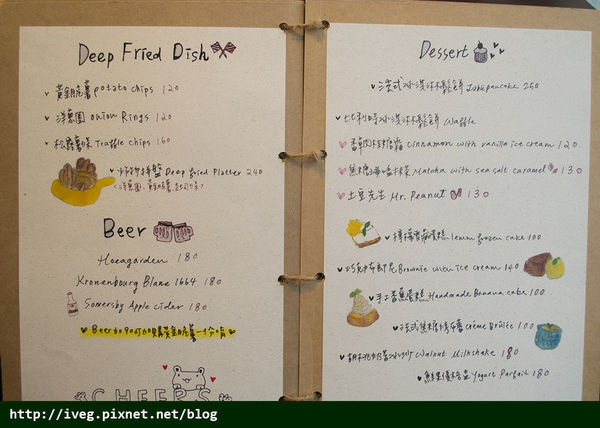 Deep Fried Dish
黃金脆薯 potato chips 120
洋蔥圈 onion Rings 120
松露薯條 Truffle chips 160
炸物拼盤 Deep fried Platter 240
Beer
Hoegarden 180
Kronenbourg Blanc 1664 180
Somersby Apple cider 180
CHEERS
Dessert
冰淇淋鬆餅 pancake 250
比利時冰淇淋鬆餅 Waffle
Cinnamon with vanilla ice cream 120
Matcha with sea salt caramel 130
土豆先生 Mr. Peanut 130
檸檬霜凍蛋糕 lemon frozen cake 100
巧克力布朗尼 Brownie with ice cream 140
手工香蕉蛋糕 Handmade Banana cake 100
法式焦糖烤布蕾 Crème Brûlée 100
Walnut Milkshake 180
Yogurt Parfait 180
http://iveg.pixnet.net/blog